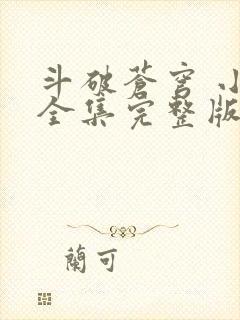 斗破蒼穹
全集完整版
蘭可